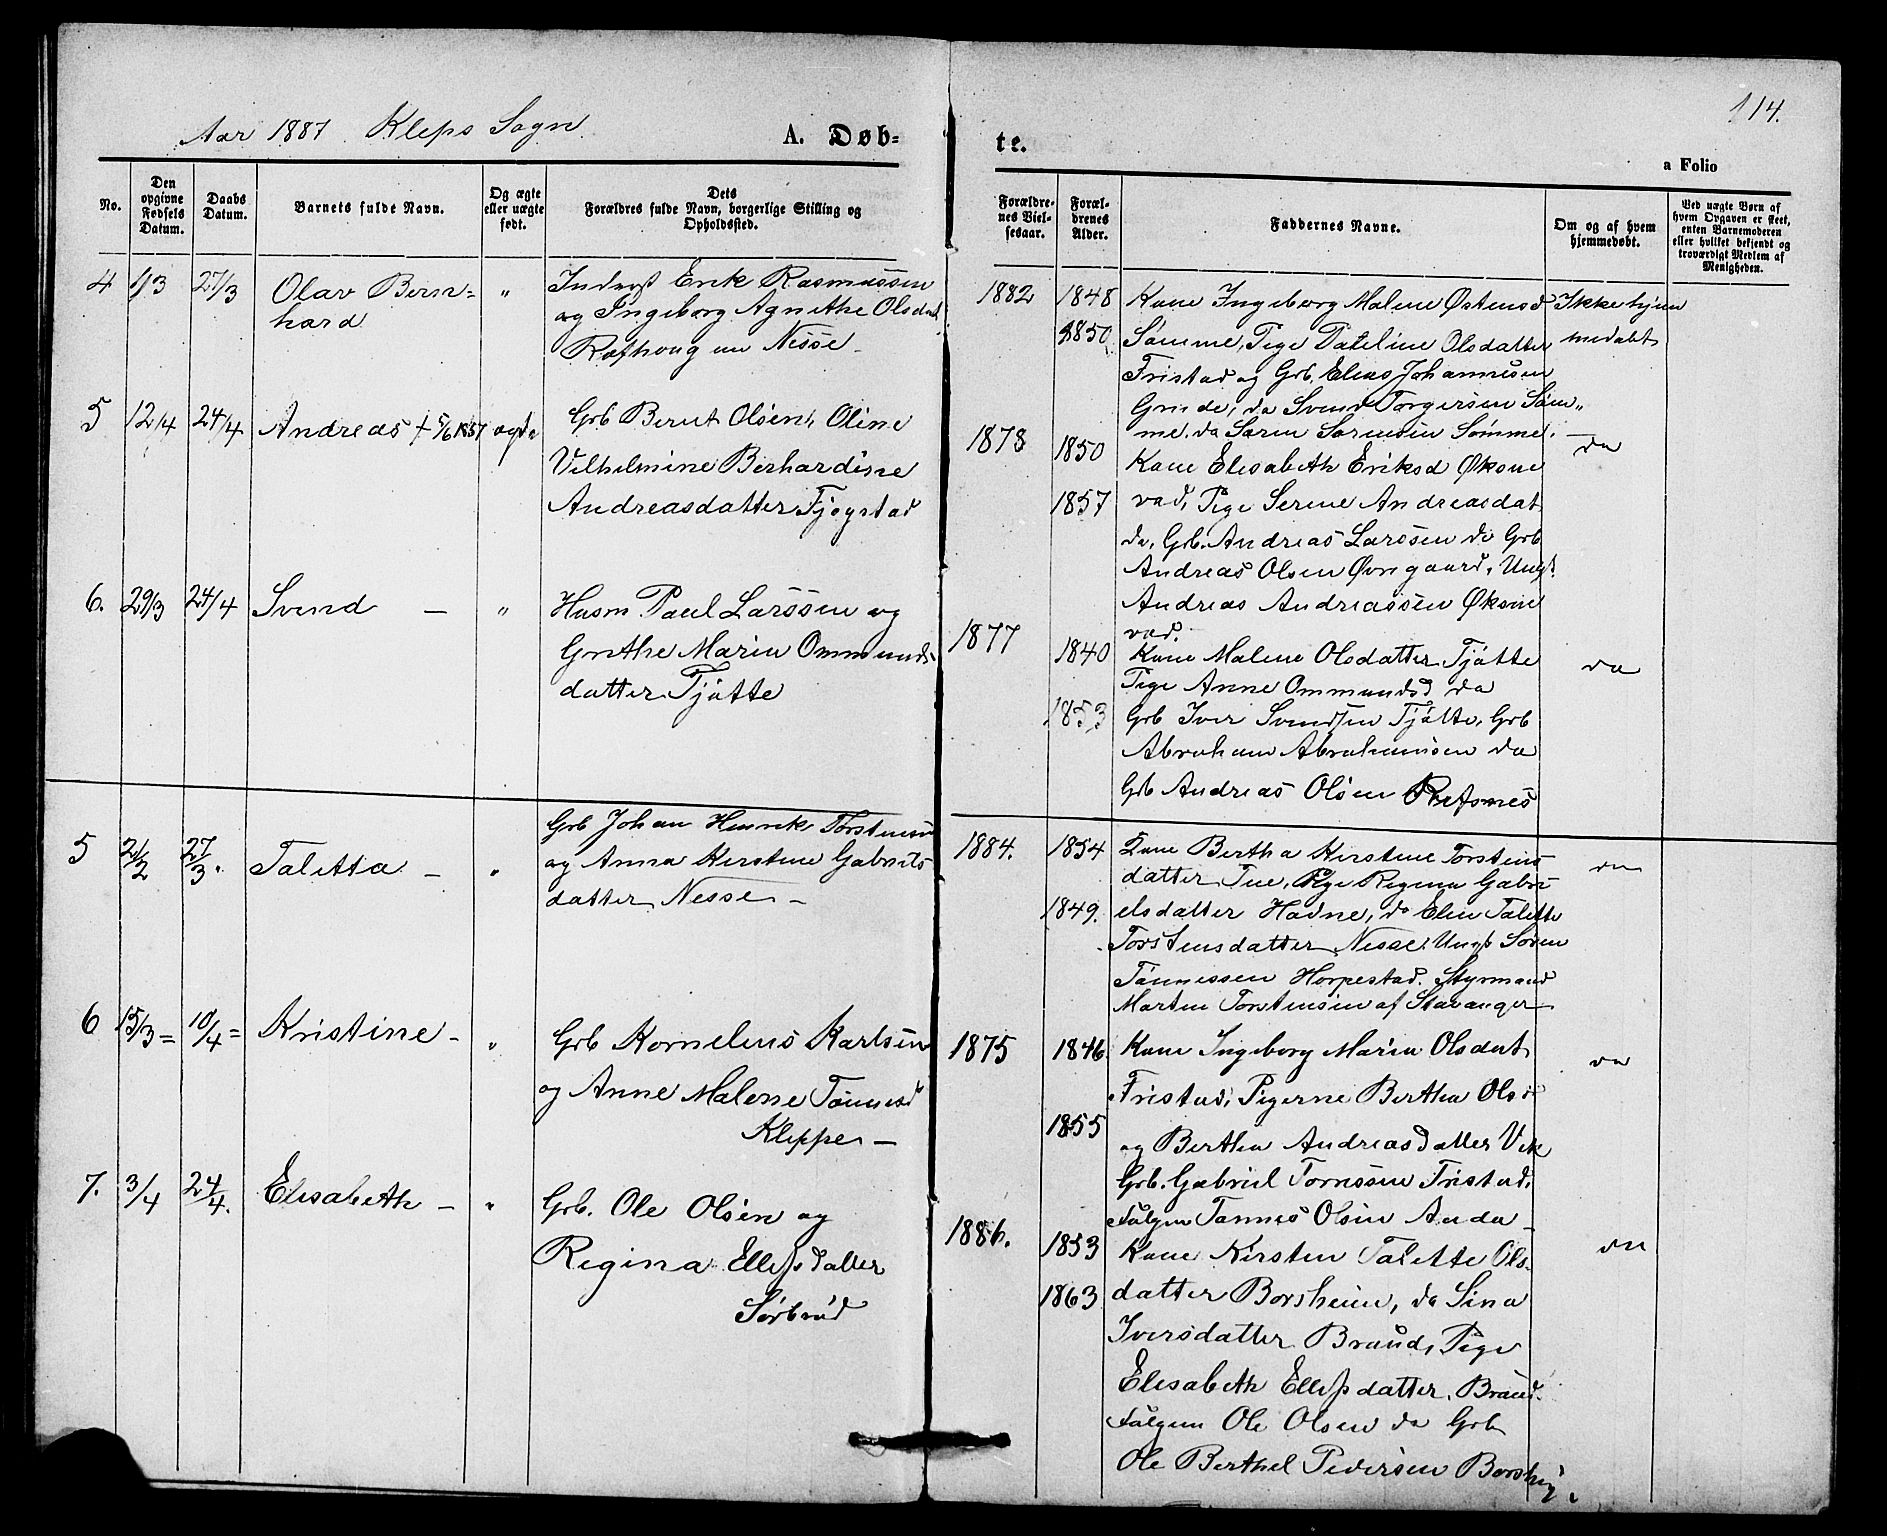 114.
Aar 1887 Kleps Sogn
A. Døb-
te.
a Folio
No.
Den opgivne Fødsels Datum.
Daabs Datum.
Barnets fulde Navn.
Og ægte eller uægte født.
Dets Forældres fulde Navn, borgerlige Stilling og Opholdssted.
Forældre-nes Viel-sesaar.
Foræl-drenes Alder.
Faddernes Navne.
Om og af hvem hjemmedøbt.
Ved uægte Børn af hvem Opgaven er skeet, enten Barnemoderen eller hvilket bekjendt og troværdigt Medlem af Menigheden.
4 1/3 27/3 Olav Bern=
hard
" Inderst Erik Rasmussen
og Ingeborg Agnethe Olsdat
Næsse
1882 1848
1850
Kone Ingeborg Malene Østensd
Sømme, Pige Olsdatter
Fristad og Grb. Elias Johannesen
Grude, do Svend Torgersen Søm„
me. do Søren Sørensen Sømme.
Ikke hjem
medøbt
5 12/4 24/4 Andreas † 5/6 1887 ægte
Grb Berut Olsen, Oline
Vilhelmine Berhardine
Andreasdatter Fjogstad
1878 1850
1857
Kone Elisabeth Eriksd Øksne
vad, Pige Serine Andreasdat
do, Grb. Andreas Larssen do Grb
Andreas Olsen Øvregaard, Ungk.
Andreas Andreassen Øksne
vad.
do
6. 29/3 24/4 Svend — "
Husm Paul Larssen og
Grethe Maria Ommunds-
datter Tjøtte
1877 1840
1853
Kone Malene Olsdatter Tjøtte
Pige Anne Ommundsd do
Grb Iver Svendsen Tjøtte, Grb
Abraham Abrahamsen do
Grb Andreas Olsen Refsnes
do
5 21/2 27/3. Taletta — "
Grb Johan Henrik Torstensen
og Anna Kirstine Gabriels
datter Nesse —
1884. 1854
1849.
Kone Bertha Kirstine Torstens
datter Tue, Pige Regina Gabri
elsdatter Hadne, do Elen Talette
Torstensdatter Nesse, Ungk Søren
Tønnessen Horpestad. Styrmand
Morten Torstensen af Stavanger
do
6 15/3= 10/4= Kristine — "
Grb Kornelius Karlsen
og Anne Malene Tønnesd
Kleppe —
1875 1846
1855
Kone Ingeborg Maria Olsdat
Fristad, Pigerne Bertha Olsd
og Bertha Andreasdatter Vik
Grb. Gabriel Fristad,
Følgem Tønnes Olsen Anda —
do
7. 3/4 24/4. Elisabeth — "
Grb. Ole Olsen og
Regina Ellefsdatter
Sørbrød
1886. 1853
1863
Kone Kirsten Talette Ols-
datter Borsheim, do Sina
Iversdatter Braud, Pige
Elisabeth Ellefsdatter, Braud.
Følgem Ole Olsen do Grb
Ole Berthel Pedersen Borsheim.
do